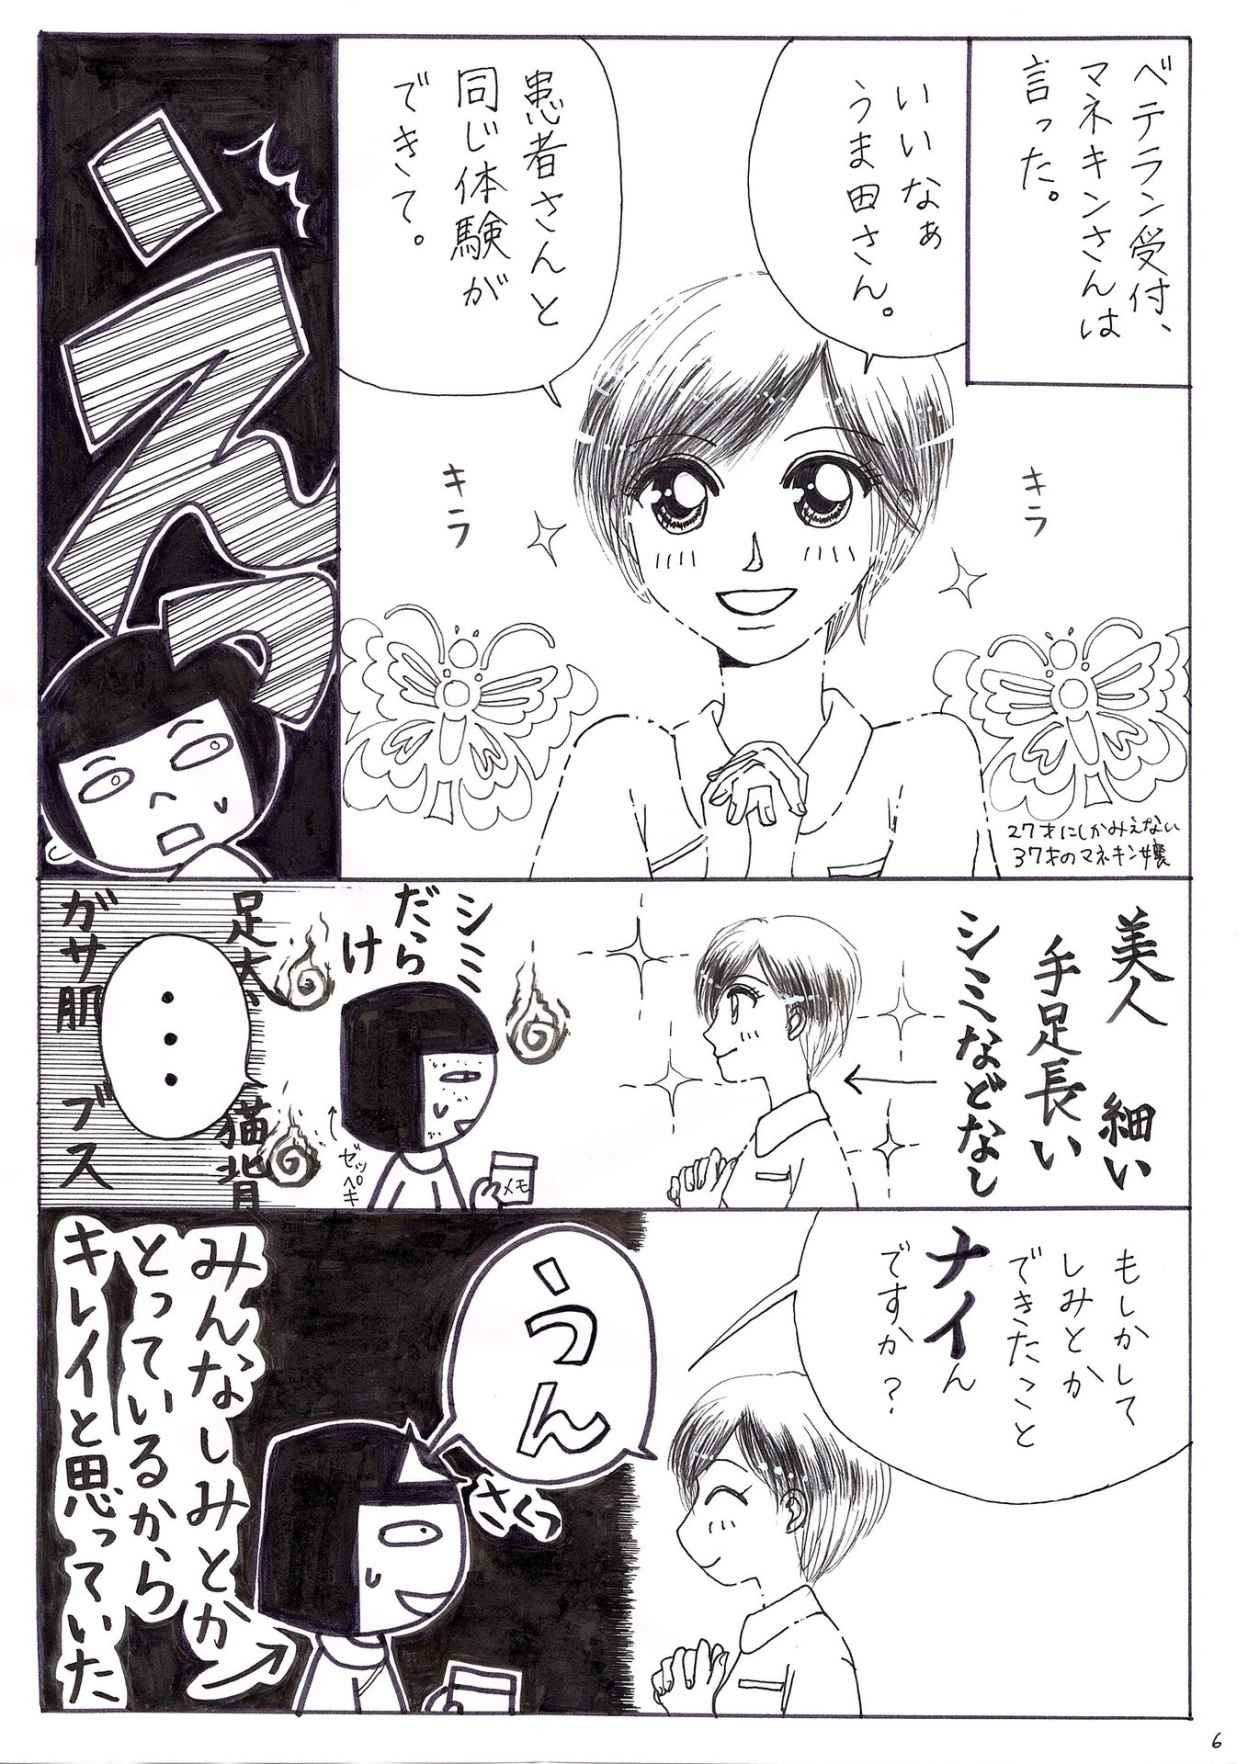 ベテラン受付、
マネキンさんは
言った。
いいなぁ
うま田さん。
患者さんと
同じ体験が
できて。
キラ
キラ
27才にしかみえない
37才のマネキン嬢
えっ
美人 細い
手足長い
シミなどなし
シミ
だら
け
ゼッペキ
メモ
足太
猫背
・・・
ガサ肌 ブス
もしかして
しみとか
できたこと
ナイん
ですか?
うん
さくっ
みんなしみとか
とっているから
キレイと思っていた
6